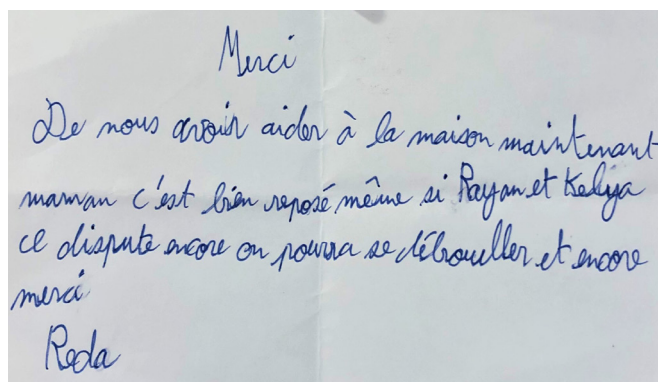 Merci
De nous avoir aider à la maison maintenant
maman c'est bien reposé même si Rayan et Kelya
ce dispute encore on pourra se débrouller et encore
merci
Reda